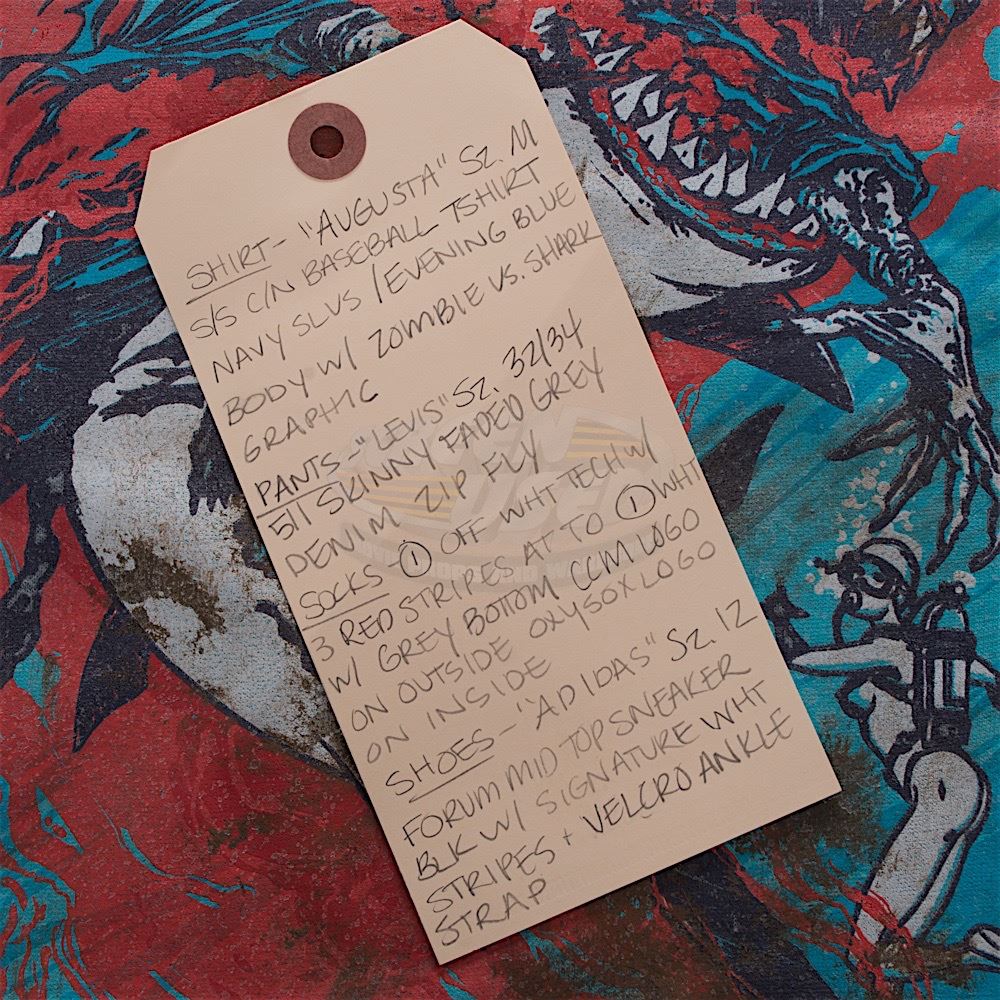 SHIRT- "AUGUSTA" SZ. M
S/S C/N BASEBALL TSHIRT
NAVY SLVS / EVENING BLUE
BODY W/ ZOMBIE VS. SHARK
GRAPHIC
PANTS-"LEVIS" SZ. 32/34
511 SKINNY FADED GREY
DENIM ZIP FLY
SOCKS ① OFF WHT TECH W/
3 RED STRIPES AT TO ① WHT
W/ GREY BOTTOM CCM LOGO
ON OUTSIDE OXYSOX LOGO
ON INSIDE
SHOES- "ADIDAS" SZ. 12
FORUM MID TOP SNEAKER
BLK W/ SIGNATURE WHT
STRIPES + VELCRO ANKLE
STRAP